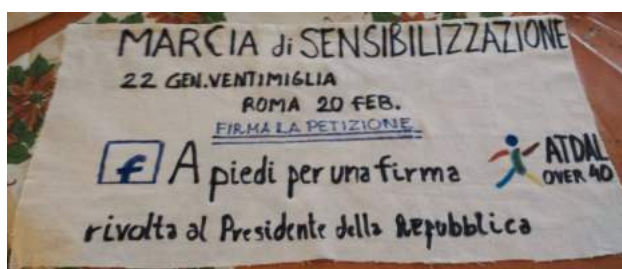 MARCIA di SENSIBILIZZAZIONE
22 GEN. VENTIMIGLIA
ROMA 20 FEB.
FIRMA LA PETIZIONE
f A piedi per una firma
ATDAL
OVER 40
rivolta al Presidente della Repubblica